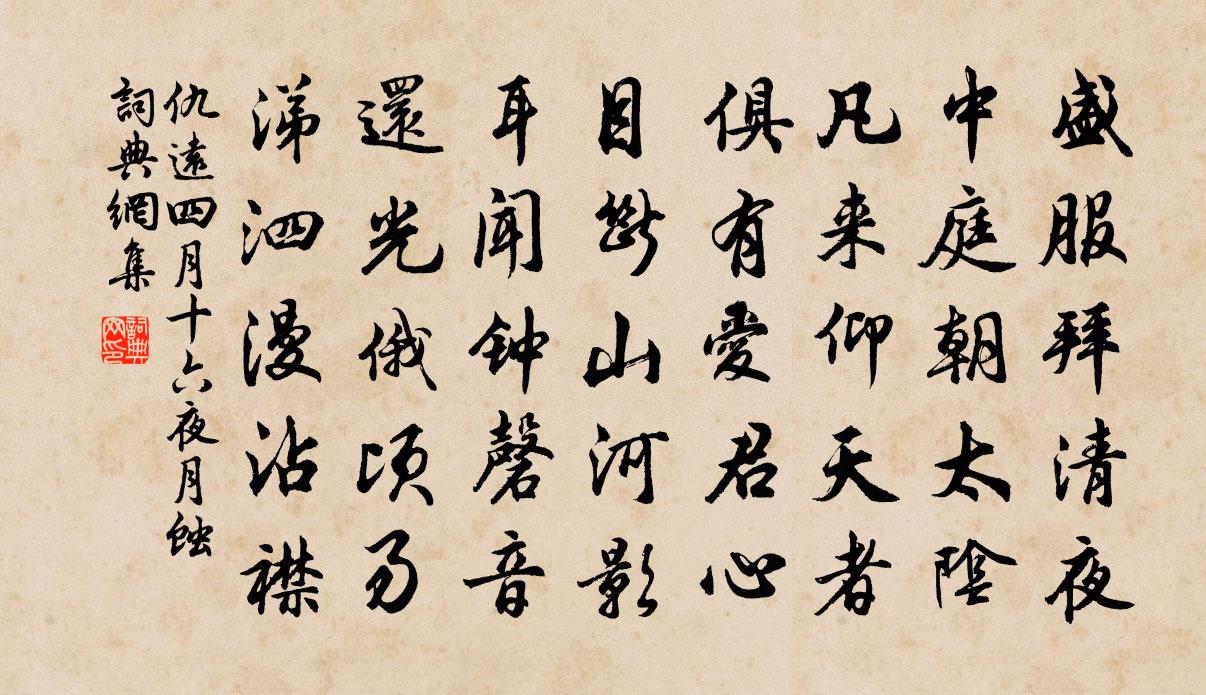 盛服拜清夜
中庭朝太陰
凡来仰天者
俱有愛君心
目斷山河影
耳聞钟磬音
還光俄頃易
涕泗漫沾襟
仇遠四月十六夜月蝕
詞典網集
詞典网印